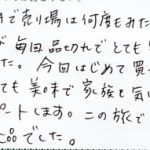 月で売り場は何度もみた
が毎回品切れでとても
た。今回はじめて買
ても美味で家族も気
ートします。この旅で
品でした。